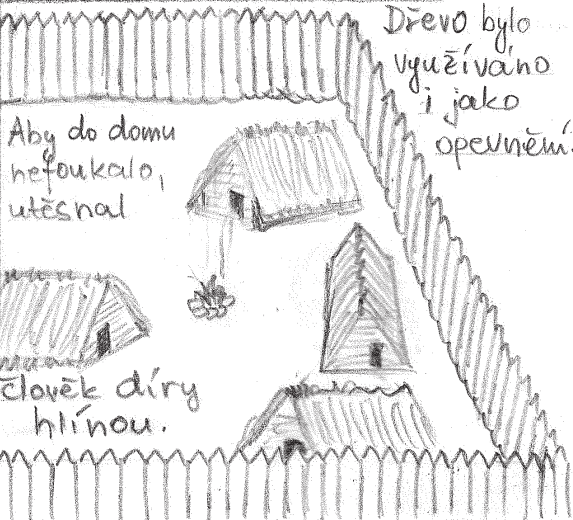 Dřevo bylo
využíváno
i jako
opevnění.
Aby do domu
nefoukalo,
utěsnal
člověk díry
hlínou.